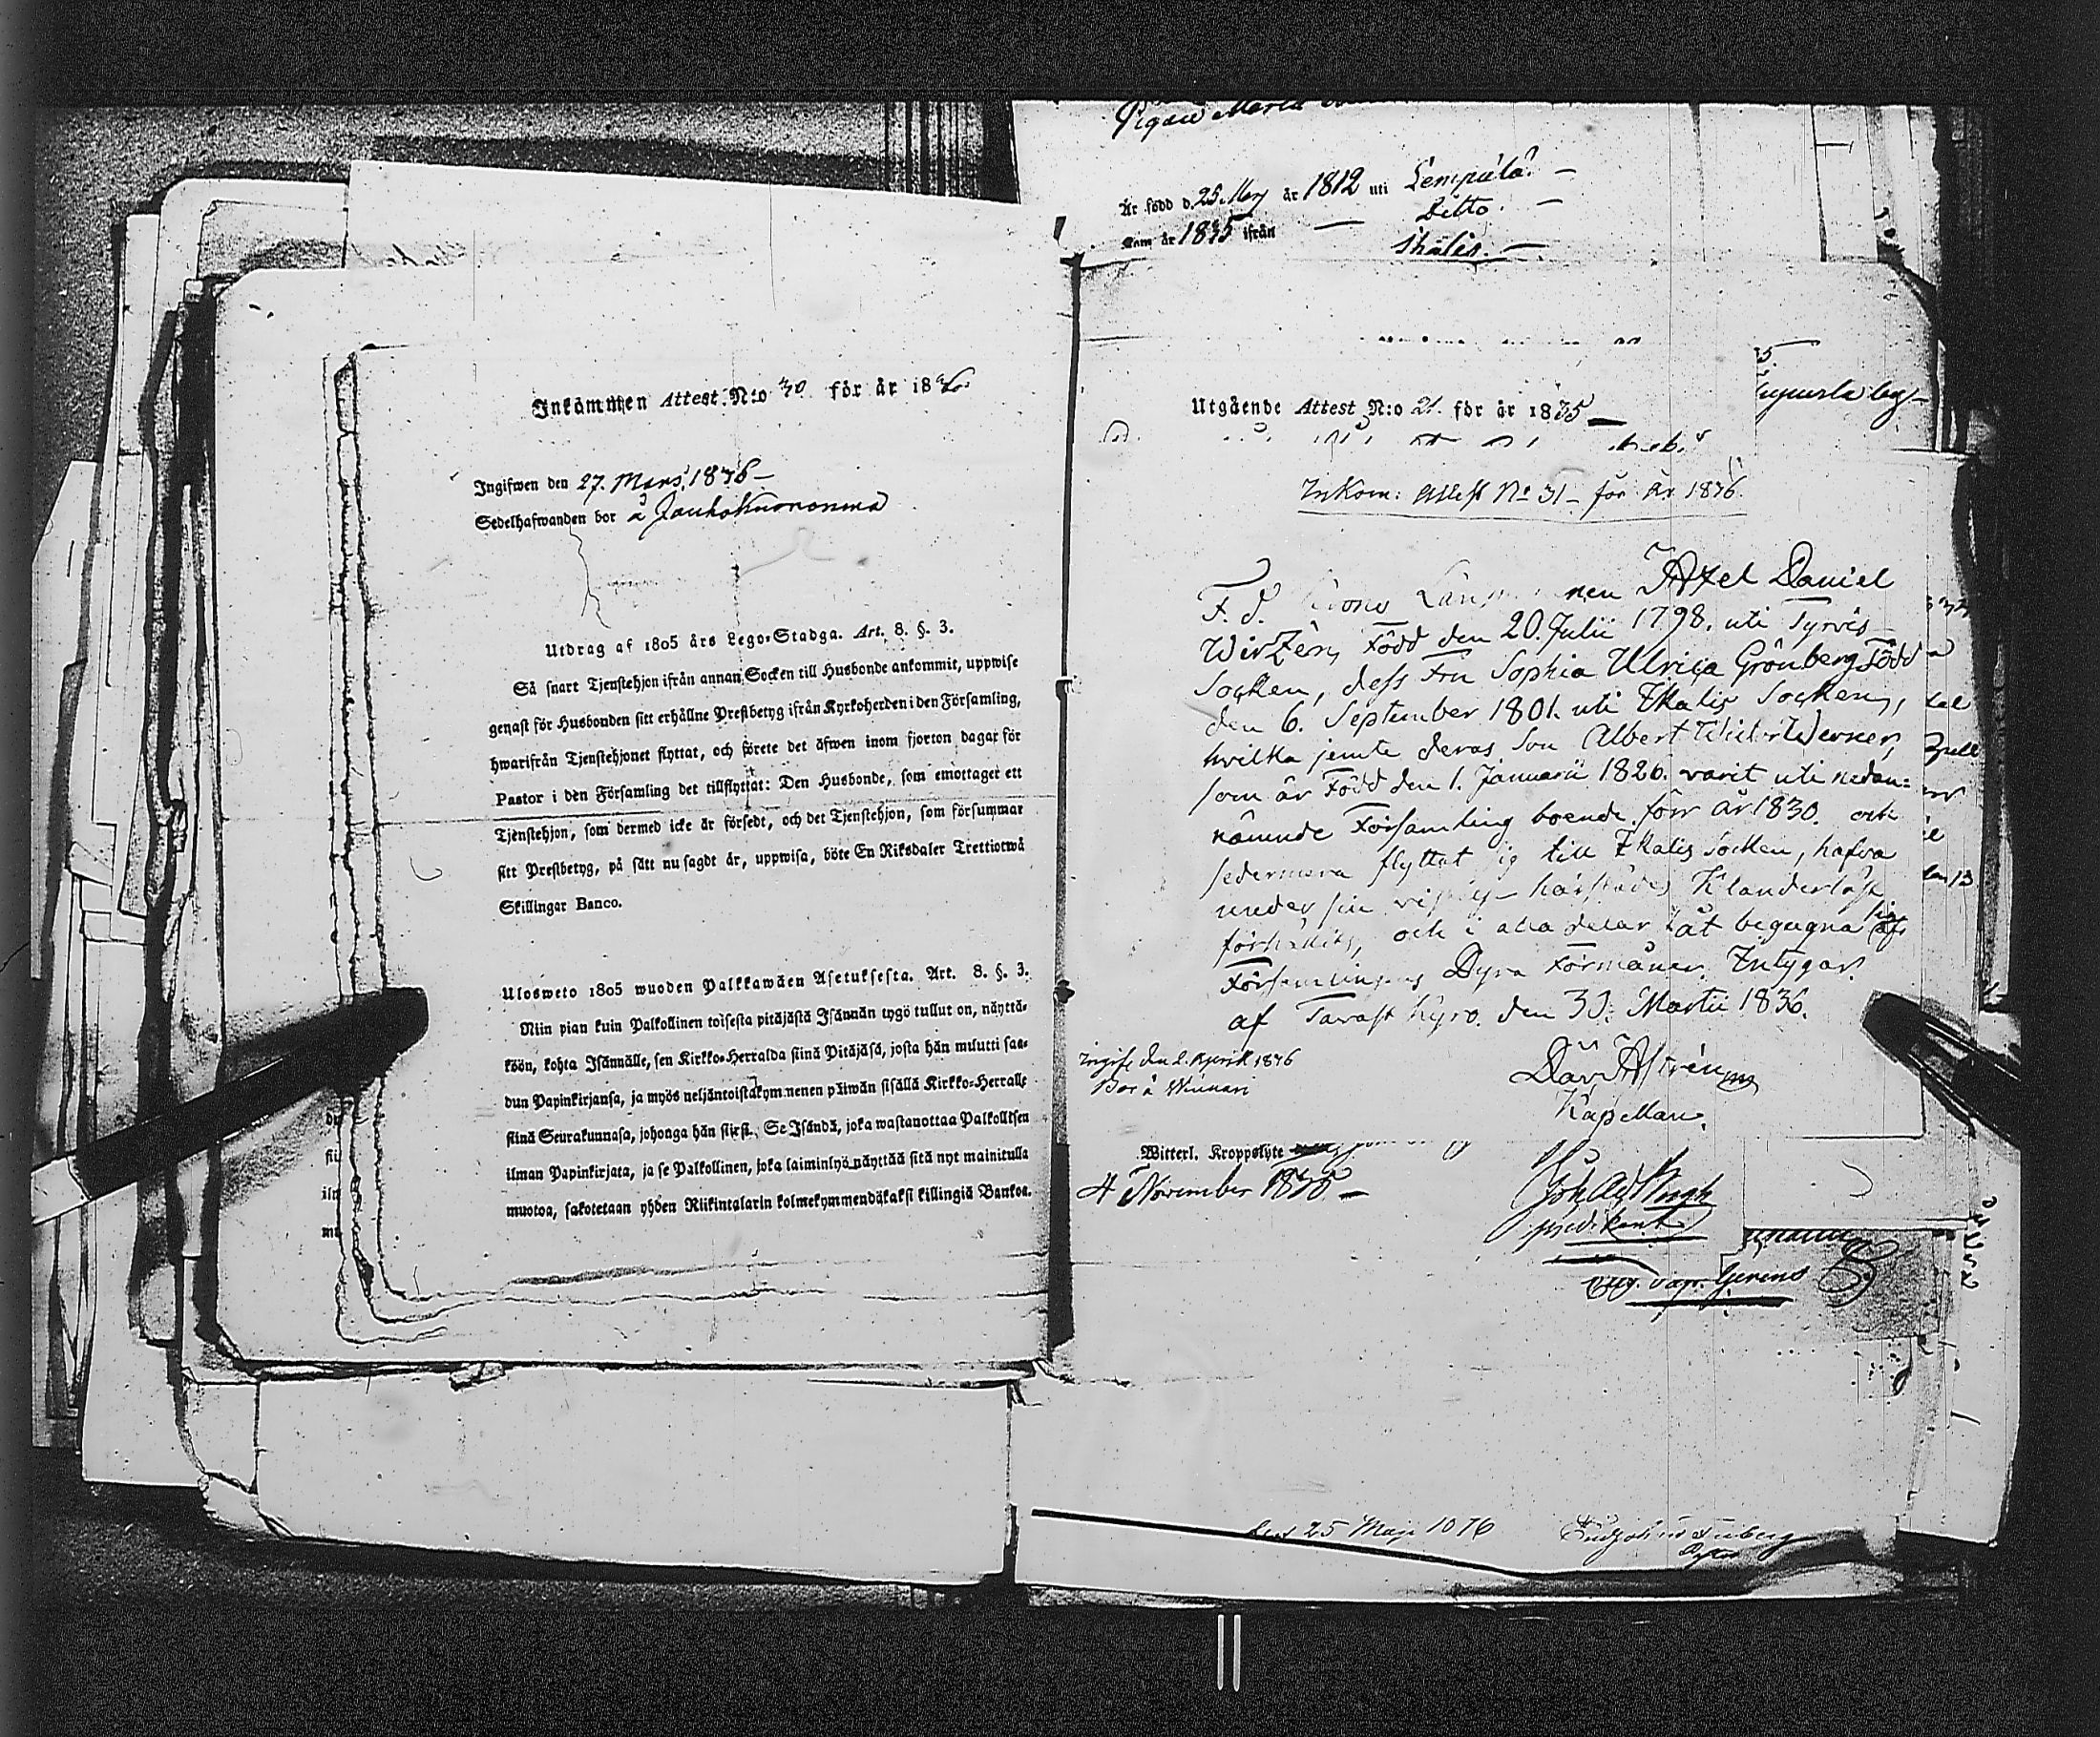 Inkommen Attest N:o 30 för år 1836.
Ingifwen den 27. Mars 1836 –
Sedelhafwanden bor å
Utdrag af 1805 års Lego-Stadga. Art. 8. §. 3.
Så snart Tjenstehjon ifrån annan Socken till Husbonde ankommit, uppwise
genast för Husbonden sitt erhållne Prestbetyg ifrån Kyrkoherden i den Församling,
hwarifrån Tjenstehjonet flyttat, och förete det äfwen inom fjorton dagar för
Pastor i den Församling det tillflyttat: Den Husbonde, som emottaget ett
Tjenstehjon, som dermed icke är försedt, och det Tjenstehjon, som försummar
sitt Prestbetyg, på sätt nu sagdt är, uppwisa, böte En Riksdaler Trettiotwå
Skillingar Banco.
Ulosweto 1805 wuoden Palkkawäen Asetuksesta. Art. 8. §. 3.
Niin pian kuin Palkollinen toisesta pitäjästä Isännän tygö tullut on, näyttä-
köön, kohta Isännälle, sen Kirkko-Herralda siinä Pitäjäsä, josta hän muutti saa-
dun Papinkirjansa, ja myös neljäntoistakymmenen päiwän sisällä Kirkko-Herralle
siinä Seurakunnasa, johonga hän siirsi. Se Isändä, joka wastanottaa Palkollisen
ilman Papinkirjata, ja se Palkollinen, joka laiminlyö näyttää sitä nyt mainitulla
muotoa, sakotetaan yhden Riikintalarin kolmekymmendäkaksi killingiä Bankoa.
Pigan Maria
Är född d. 25. Maj år 1812 uti Lempälä. –
Kom år 1835 ifrån – Ditto. –
Ikalis. –
Utgående Attest N:o 21. för år 1835 –
Inkom: Attest No 31 – för År 1836.
F. d. Krono Länsmannen Axel Daniel
Wirzén, Född den 20. Julii 1798. uti Tyrvis
Socken, dess Fru Sophia Ulrica Grönberg Född
den 6. September 1801. uti Ikalis Socken,
hvilka jemte deras Son Albert Werner,
som är Född den 1. Januarii 1826. varit uti nedan=
nämnde Församling boende förr år 1830. och
sedermera flyttat sig till Ikalis socken, hafva
under sin härstädes Klanderlöst
förhållit, och i alla delar låt begagna sig af
Församlingens Dyra Förmåner. Intygar.
af Tavast Kyro. den 30. Martii 1836.
Dav. Astrén
Kapellan.
Ingifv. den 2. April 1836
Bor å
Witterl. Kroppslyte
4 November 1835 –
predikant
den 25 Maji